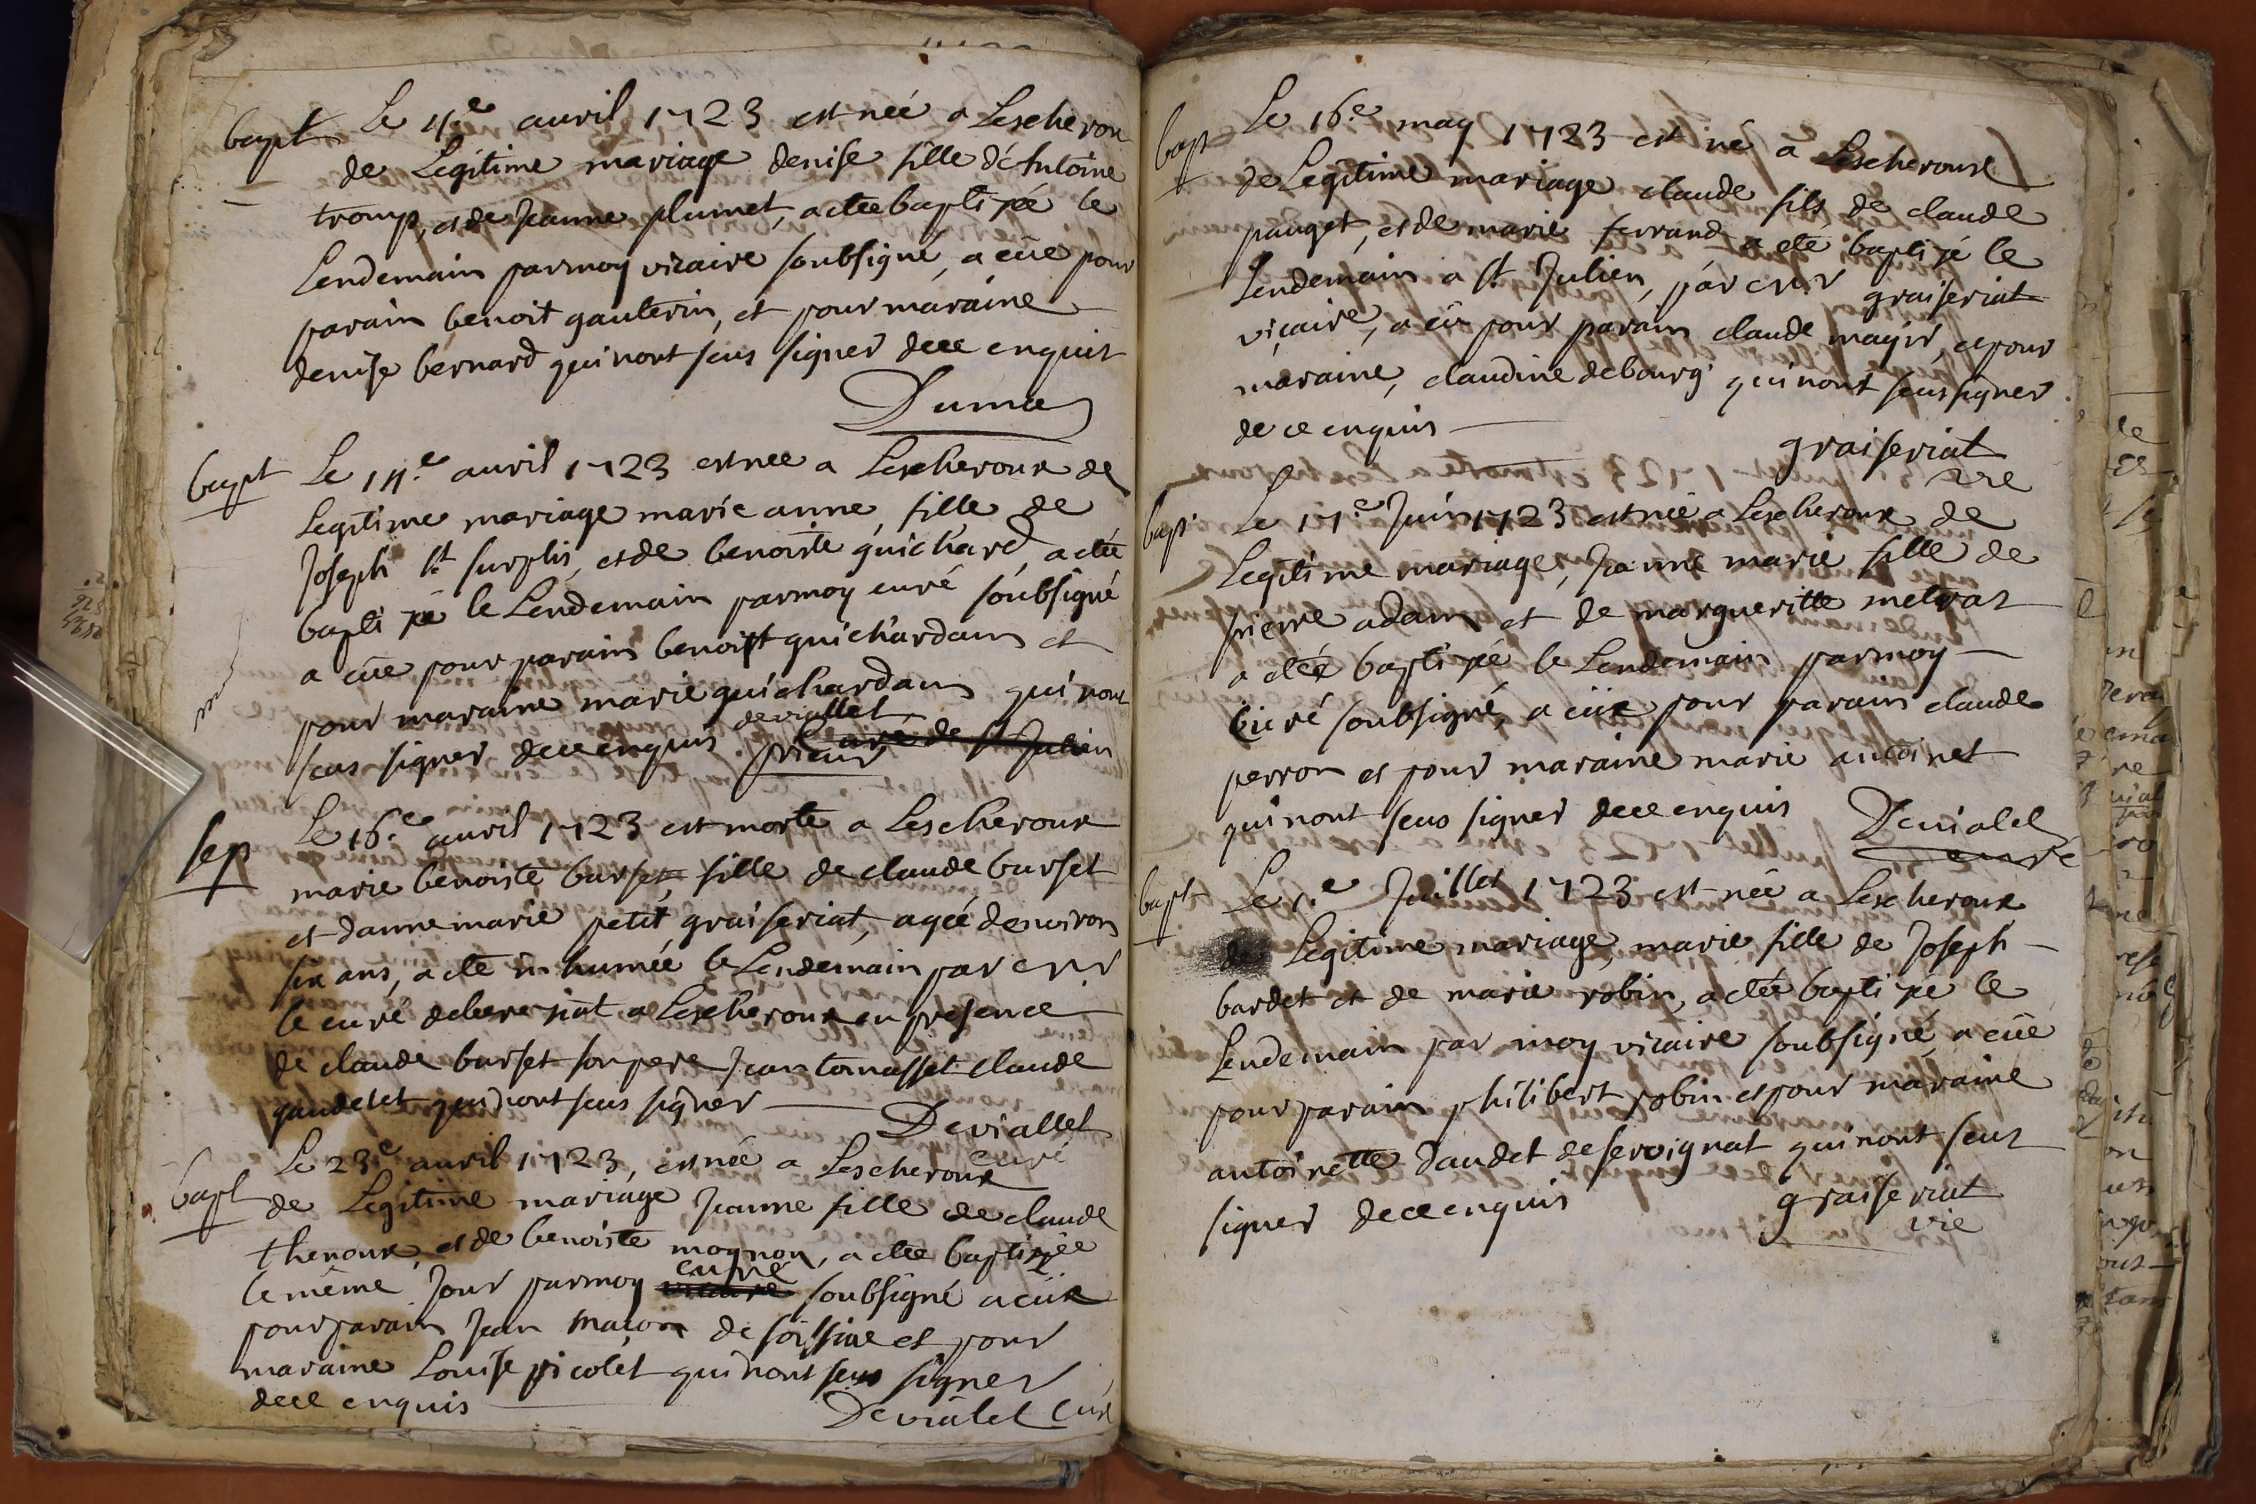 bapt Le 11.e auvril 1723 est née a Lescheroux
de Legitime mariage denise fille d'Antoine
tromp, et de Jeanne plumet, a etée baptisée le
Lendemain par moy vicaire soubsigné, a eüe pour
parain benoit gauterin, et pour maraine
denise bernard qui n'ont seus signer de ce enquis
Dumas
bapt Le 14.e auvril 1723 est née a Lescheroux de
Legitime mariage marie anne, fille de
Joseph st surplis, et de benoiste guichard, a etée
baptisée le Lendemain par moy curé soubsigné
a eüe pour parain benoist guichardam et
pour maraine marie guichardam qui n'ont
seus signer de ce enquis deviallet
prieur curé de st Julien
sep Le 16.e auvril 1723 est morte a Lescheroux
marie benoiste burset, fille de claude burset
et danne marie petit graiseriat, agée denviron
six ans, a eté in humée le Lendemain par
le curé de a Lescheroux en presence
de claude burset son pere Jean tomasset claude
gaudelet qui n'ont seus signer
Deviallet
curé
bapt Le 23e auvril 1723, est née a Lescheroux
de Legitime mariage Jeanne fille de claude
thenoux, et de benoiste moynon, a etée baptisée
le même Jour par moy curé vicaire soubsigné a eüe
pour parain Jean maçon de foissiae et pour
maraine Louise picolet qui n'ont seus signer
de ce enquis
Devialet curé
bapt Le 16.e may 1723 est né a Lescheroux
de Legitime mariage claude fils de claude
pauget, et de marie ferrand a eté baptisé le
Lendemain a st Julien, par graiseriat
viçaire, a eü pour parain claude , et pour
maraine, claudine debourg qui n'ont seus signer
de ce enquis
graiseriat
vre
bapt Le 17.e Juin 1723 est née a Lescheroux de
Legitime mariage, Jeanne marie fille de
pierre adam et de margueritte metras
a etée baptisée le Lendemain par moy
curé soubsigné, a eüe pour parain claude
perron et pour maraine marie antoinet
qui n'ont seus signer de ce enquis
Devialet
curé
bapt Le 1.e Juillet 1723 est née a Lescheroux
de Legitime mariage, marie fille de Joseph
bardet et de marie robin, a etée baptisée le
Lendemain par moy vicaire soubsigné, a eüe
pour parain philibert robin et pour maraine
antoinette Daudet de servignat qui n'ont seus
signer de ce enquis
graiseriat
vie